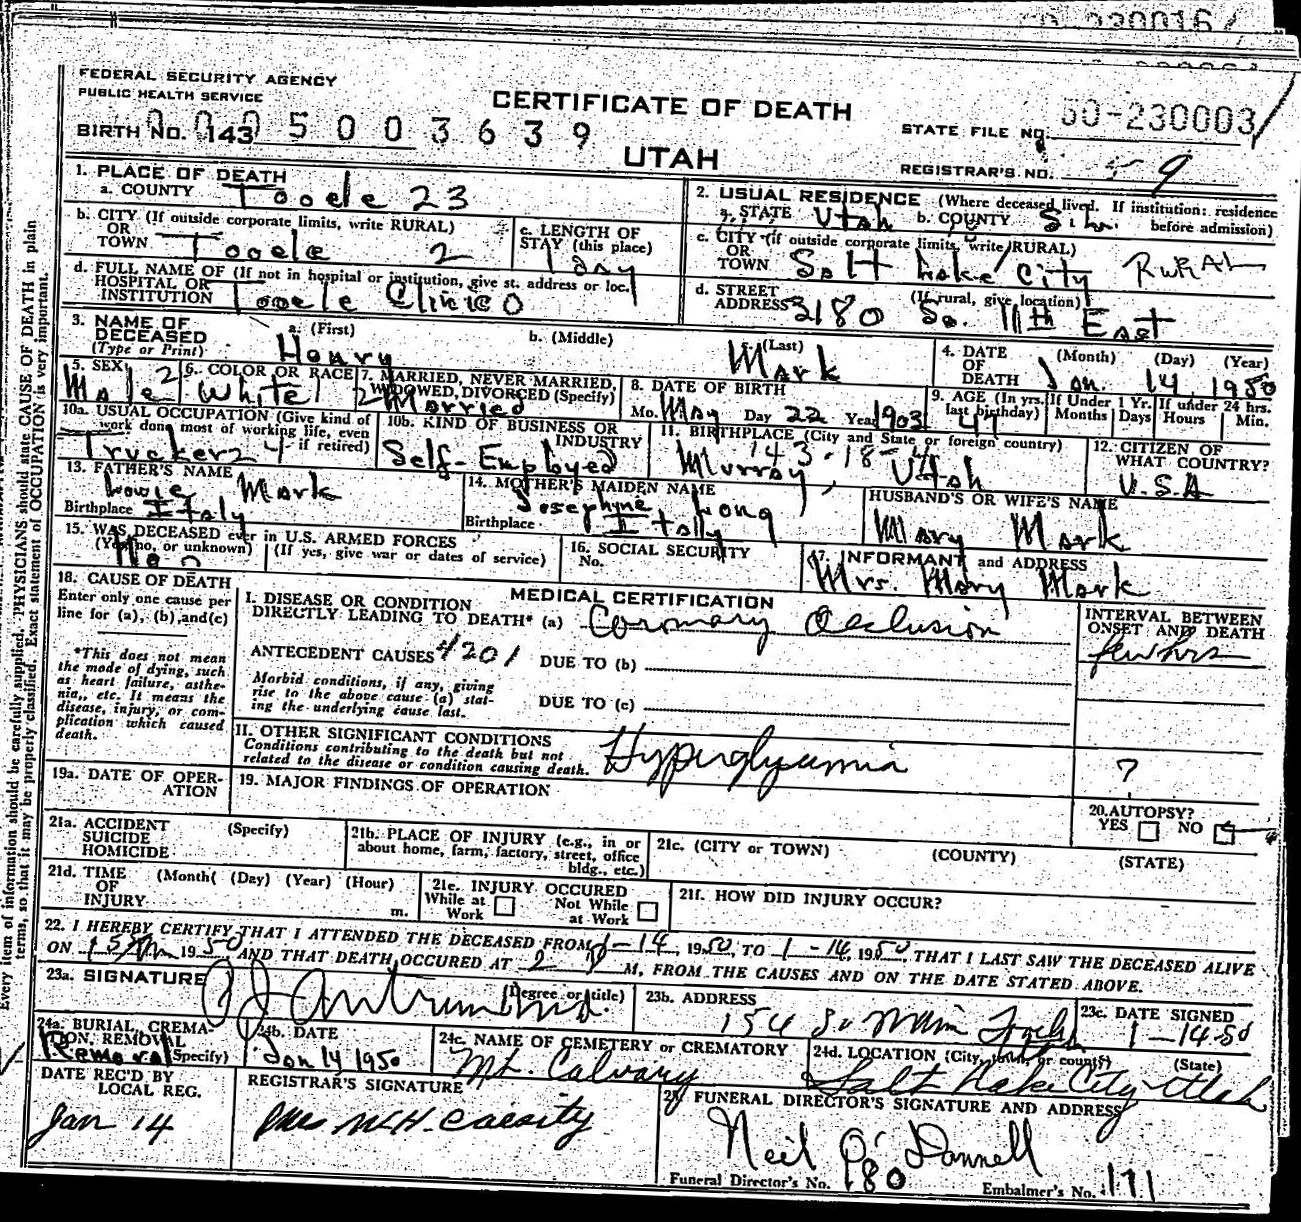 FEDERAL SECURITY AGENCY
PUBLIC HEALTH SERVICE
CERTIFICATE OF DEATH
BIRTH NO. 143 5003639
STATE FILE NO. 50-230003
UTAH
REGISTRAR'S NO. 9
1. PLACE OF DEATH
a. COUNTY Tooele 23
2. USUAL RESIDENCE (Where deceased lived. If institution: residence before admission)
a. STATE Utah b. COUNTY S.L.
b. CITY (If outside corporate limits, write RURAL)
OR TOWN Tooele 2
c. LENGTH OF STAY (this place) 1 day
c. CITY (If outside corporate limits, write RURAL)
OR TOWN Salt Lake City RURAL
d. FULL NAME OF (If not in hospital or institution, give st. address or loc.)
HOSPITAL OR INSTITUTION Tooele Clinic 0
d. STREET ADDRESS (If rural, give location) 3180 So. 11th East
3. NAME OF DECEASED (Type or Print)
a. (First) Henry
b. (Middle)
c. (Last) Mark
4. DATE OF DEATH (Month) (Day) (Year) Jan. 14, 1950
5. SEX Male 2
6. COLOR OR RACE White 1
7. MARRIED, NEVER MARRIED, WIDOWED, DIVORCED (Specify) 2 Married
8. DATE OF BIRTH Mo. May Day 22 Year 1903
9. AGE (In yrs. last birthday) 47
If Under 1 Yr. Months Days
If under 24 hrs. Hours Min.
10a. USUAL OCCUPATION (Give kind of work done most of working life, even if retired) Trucker 2 4
10b. KIND OF BUSINESS OR INDUSTRY Self-Employed
11. BIRTHPLACE (City and State or foreign country) Murray, Utah
12. CITIZEN OF WHAT COUNTRY? U.S.A
13. FATHER'S NAME Louie Mark
Birthplace Italy
14. MOTHER'S MAIDEN NAME Josephine Long
Birthplace Italy
HUSBAND'S OR WIFE'S NAME Mary Mark
15. WAS DECEASED ever in U.S. ARMED FORCES
(Yes, no, or unknown) (If yes, give war or dates of service)
16. SOCIAL SECURITY No.
17. INFORMANT and ADDRESS Mrs. Mary Mark
18. CAUSE OF DEATH
Enter only one cause per line for (a), (b), and (c)
*This does not mean the mode of dying, such as heart failure, asthenia, etc. It means the disease, injury, or complication which caused death.
MEDICAL CERTIFICATION
I. DISEASE OR CONDITION DIRECTLY LEADING TO DEATH* (a) Coronary Occlusion
INTERVAL BETWEEN ONSET AND DEATH few hrs
ANTECEDENT CAUSES 4201 DUE TO (b)
Morbid conditions, if any, giving rise to the above cause (a) stating the underlying cause last.
DUE TO (c)
II. OTHER SIGNIFICANT CONDITIONS
Conditions contributing to the death but not related to the disease or condition causing death. Hyperglycemia ?
19a. DATE OF OPERATION
19. MAJOR FINDINGS OF OPERATION
20. AUTOPSY? YES NO
21a. ACCIDENT SUICIDE HOMICIDE (Specify)
21b. PLACE OF INJURY (e.g., in or about home, farm, factory, street, office bldg., etc.)
21c. (CITY or TOWN) (COUNTY) (STATE)
21d. TIME OF INJURY (Month( (Day) (Year) (Hour) m.
21e. INJURY OCCURED While at Work Not While at Work
21f. HOW DID INJURY OCCUR?
22. I HEREBY CERTIFY THAT I ATTENDED THE DECEASED FROM 1-14, 1950, TO 1-14, 1950, THAT I LAST SAW THE DECEASED ALIVE
ON 1 1950 AND THAT DEATH OCCURED AT 2 M, FROM THE CAUSES AND ON THE DATE STATED ABOVE.
23a. SIGNATURE (Degree or title)
23b. ADDRESS 154 So Main
23c. DATE SIGNED 1-14-50
24a. BURIAL, CREMATION, REMOVAL (Specify) Removal
24b. DATE Jan 14 1950
24c. NAME OF CEMETERY OR CREMATORY Mt. Calvary
24d. LOCATION (City, town, or county) (State) Salt Lake City Utah
DATE REC'D BY LOCAL REG. Jan 14
REGISTRAR'S SIGNATURE Mrs W.H. Cassity
25 FUNERAL DIRECTOR'S SIGNATURE AND ADDRESS
Neil O'Donnell
Funeral Director's No. 180 Embalmer's No. 171
Every item of information should be carefully supplied. PHYSICIANS should state CAUSE OF DEATH in plain
terms, so that it may be properly classified. Exact statement of OCCUPATION is very important.